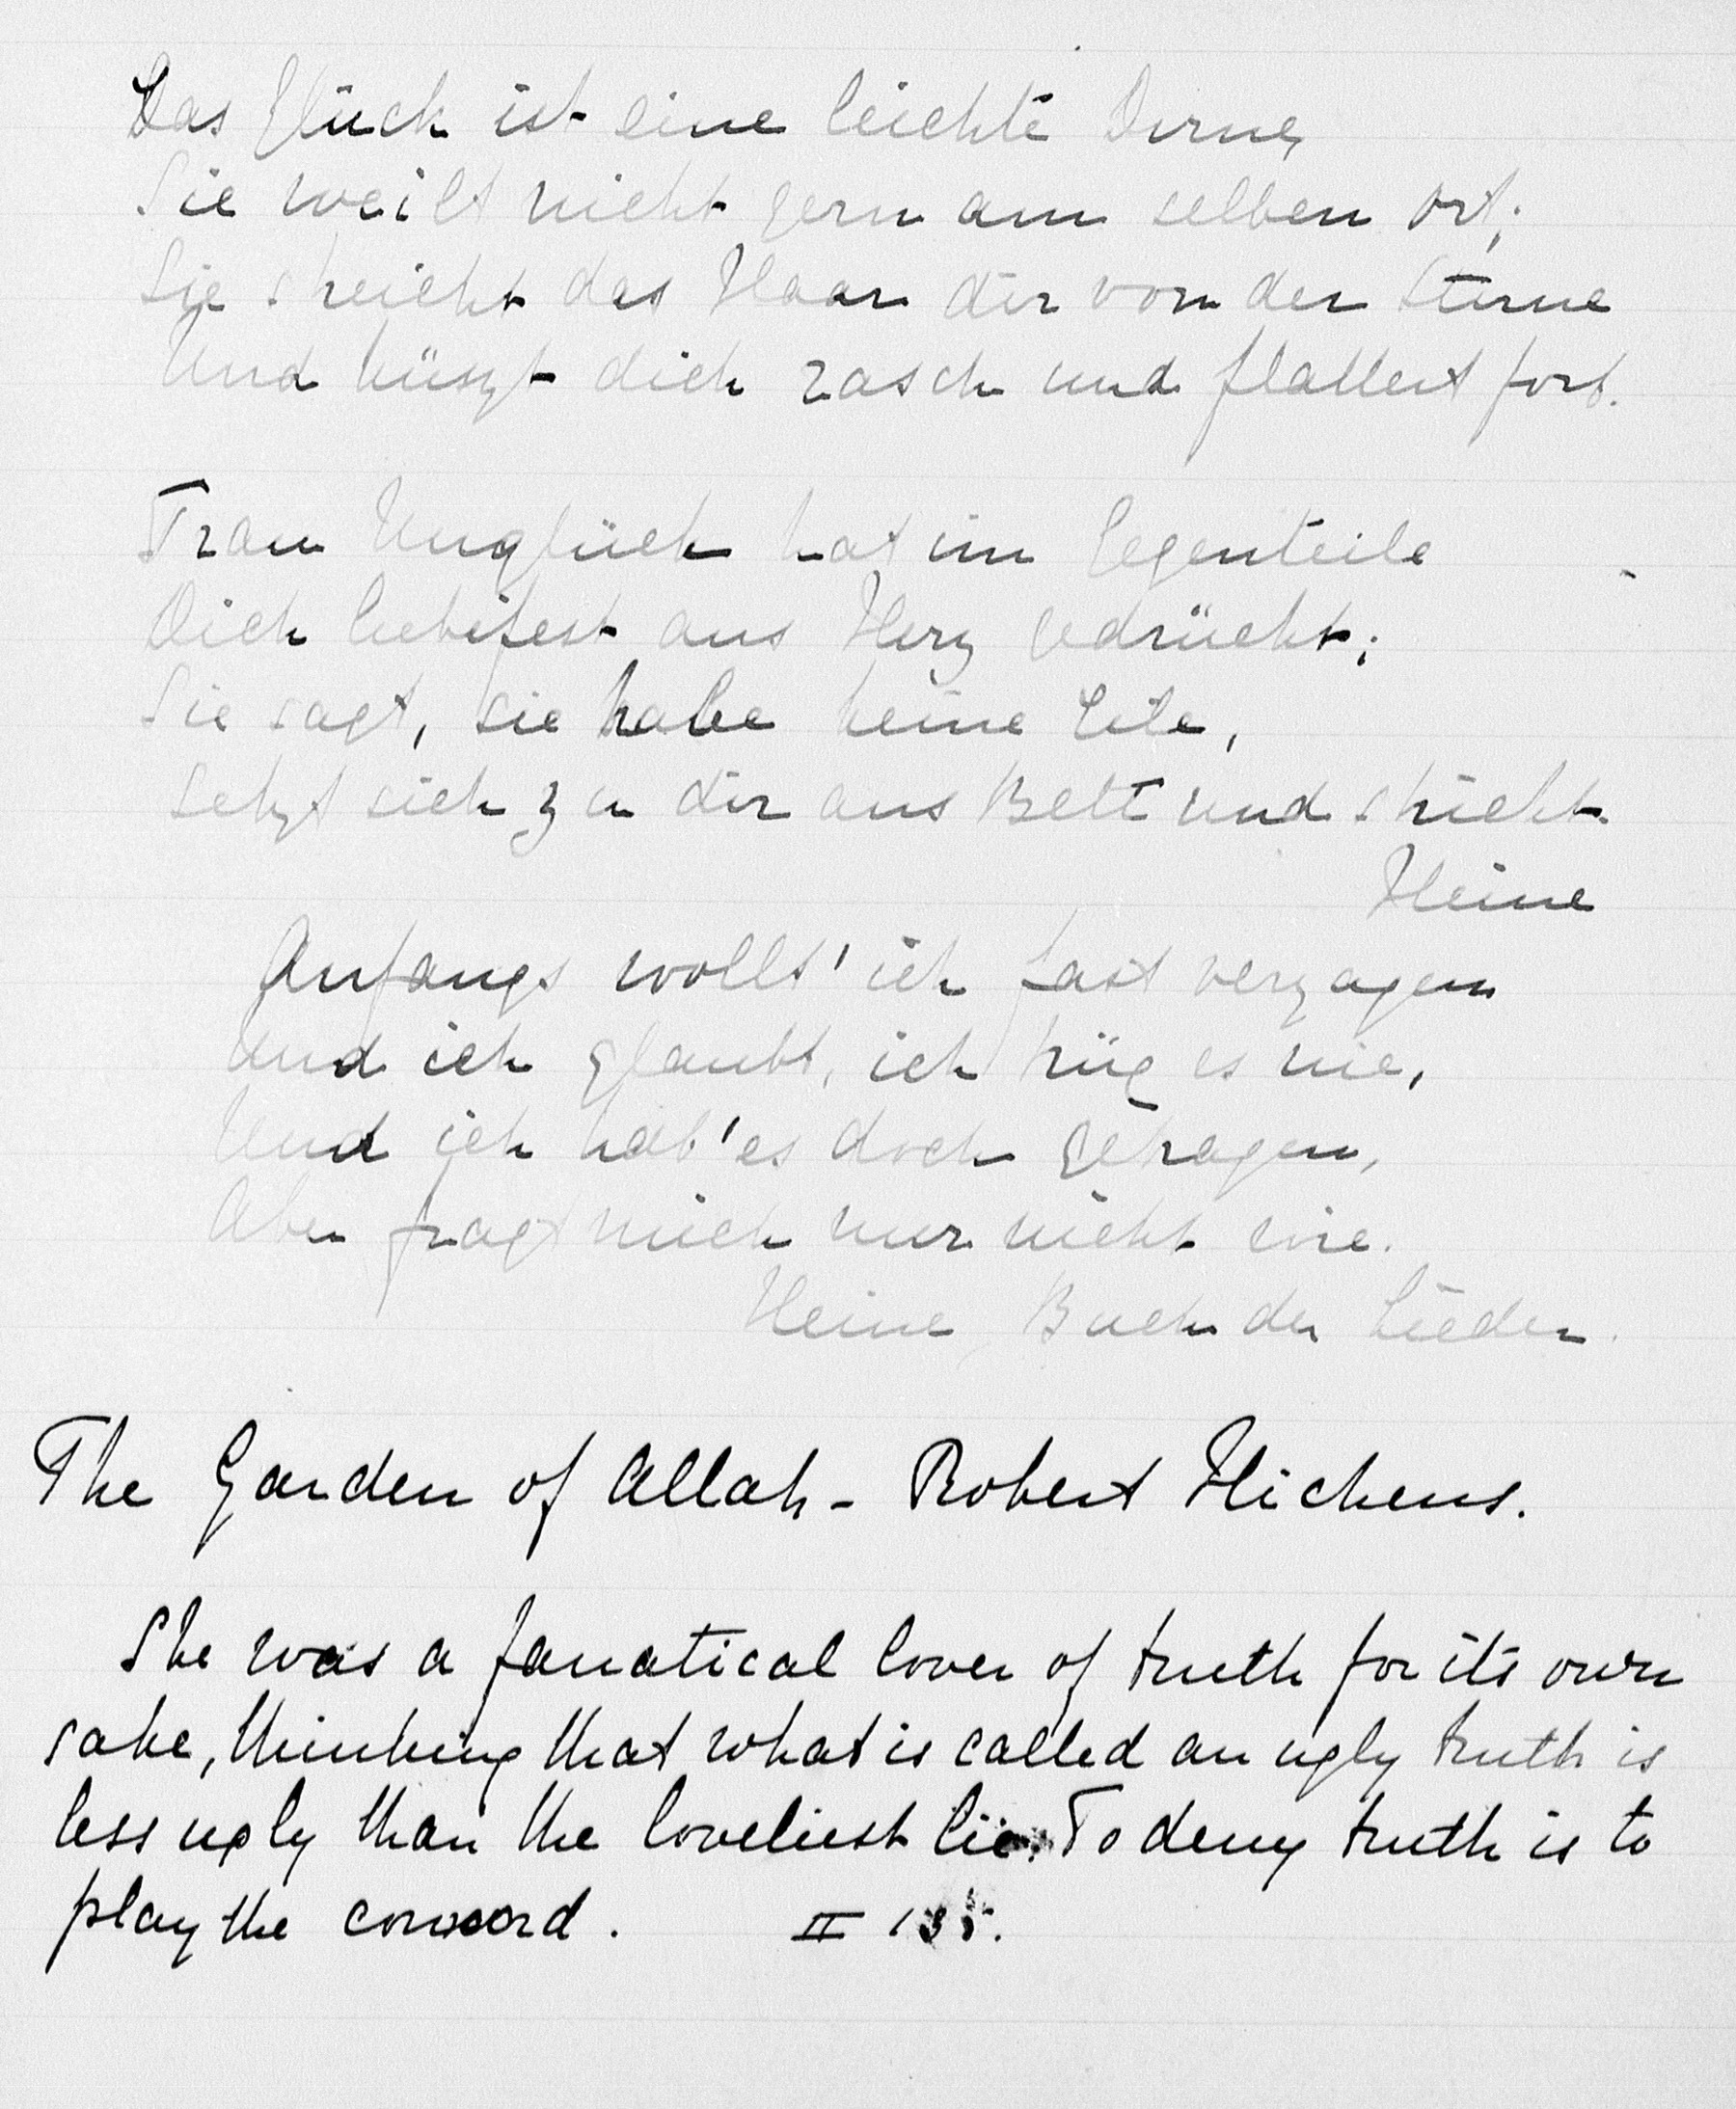 Das Glück ist eine leichte Dirne,
Sie weilt nicht gern am selben Ort;
Sie streicht das Haar dir von der Stirne
Und küszt dich rasch und flattert fort.
Frau Unglück hat im Gegenteile
Dich liebefest ans Herz gedrückt;
Sie sagt, sie habe keine Eile,
Setzt sich zu dir ans Bett und strickt.
Heine
Anfangs wollt' ich fast verzagen
Und ich glaubt, ich trüg es nie,
Und ich hab' es doch getragen,
Aber fragt mich nur nicht wie.
Heine, Buch der Lieder.
The Garden of Allah - Robert Hichens.
She was a fanatical lover of truth for its own
sake, thinking that what is called an ugly truth is
less ugly than the loveliest lie. To deny truth is to
play the coward. II